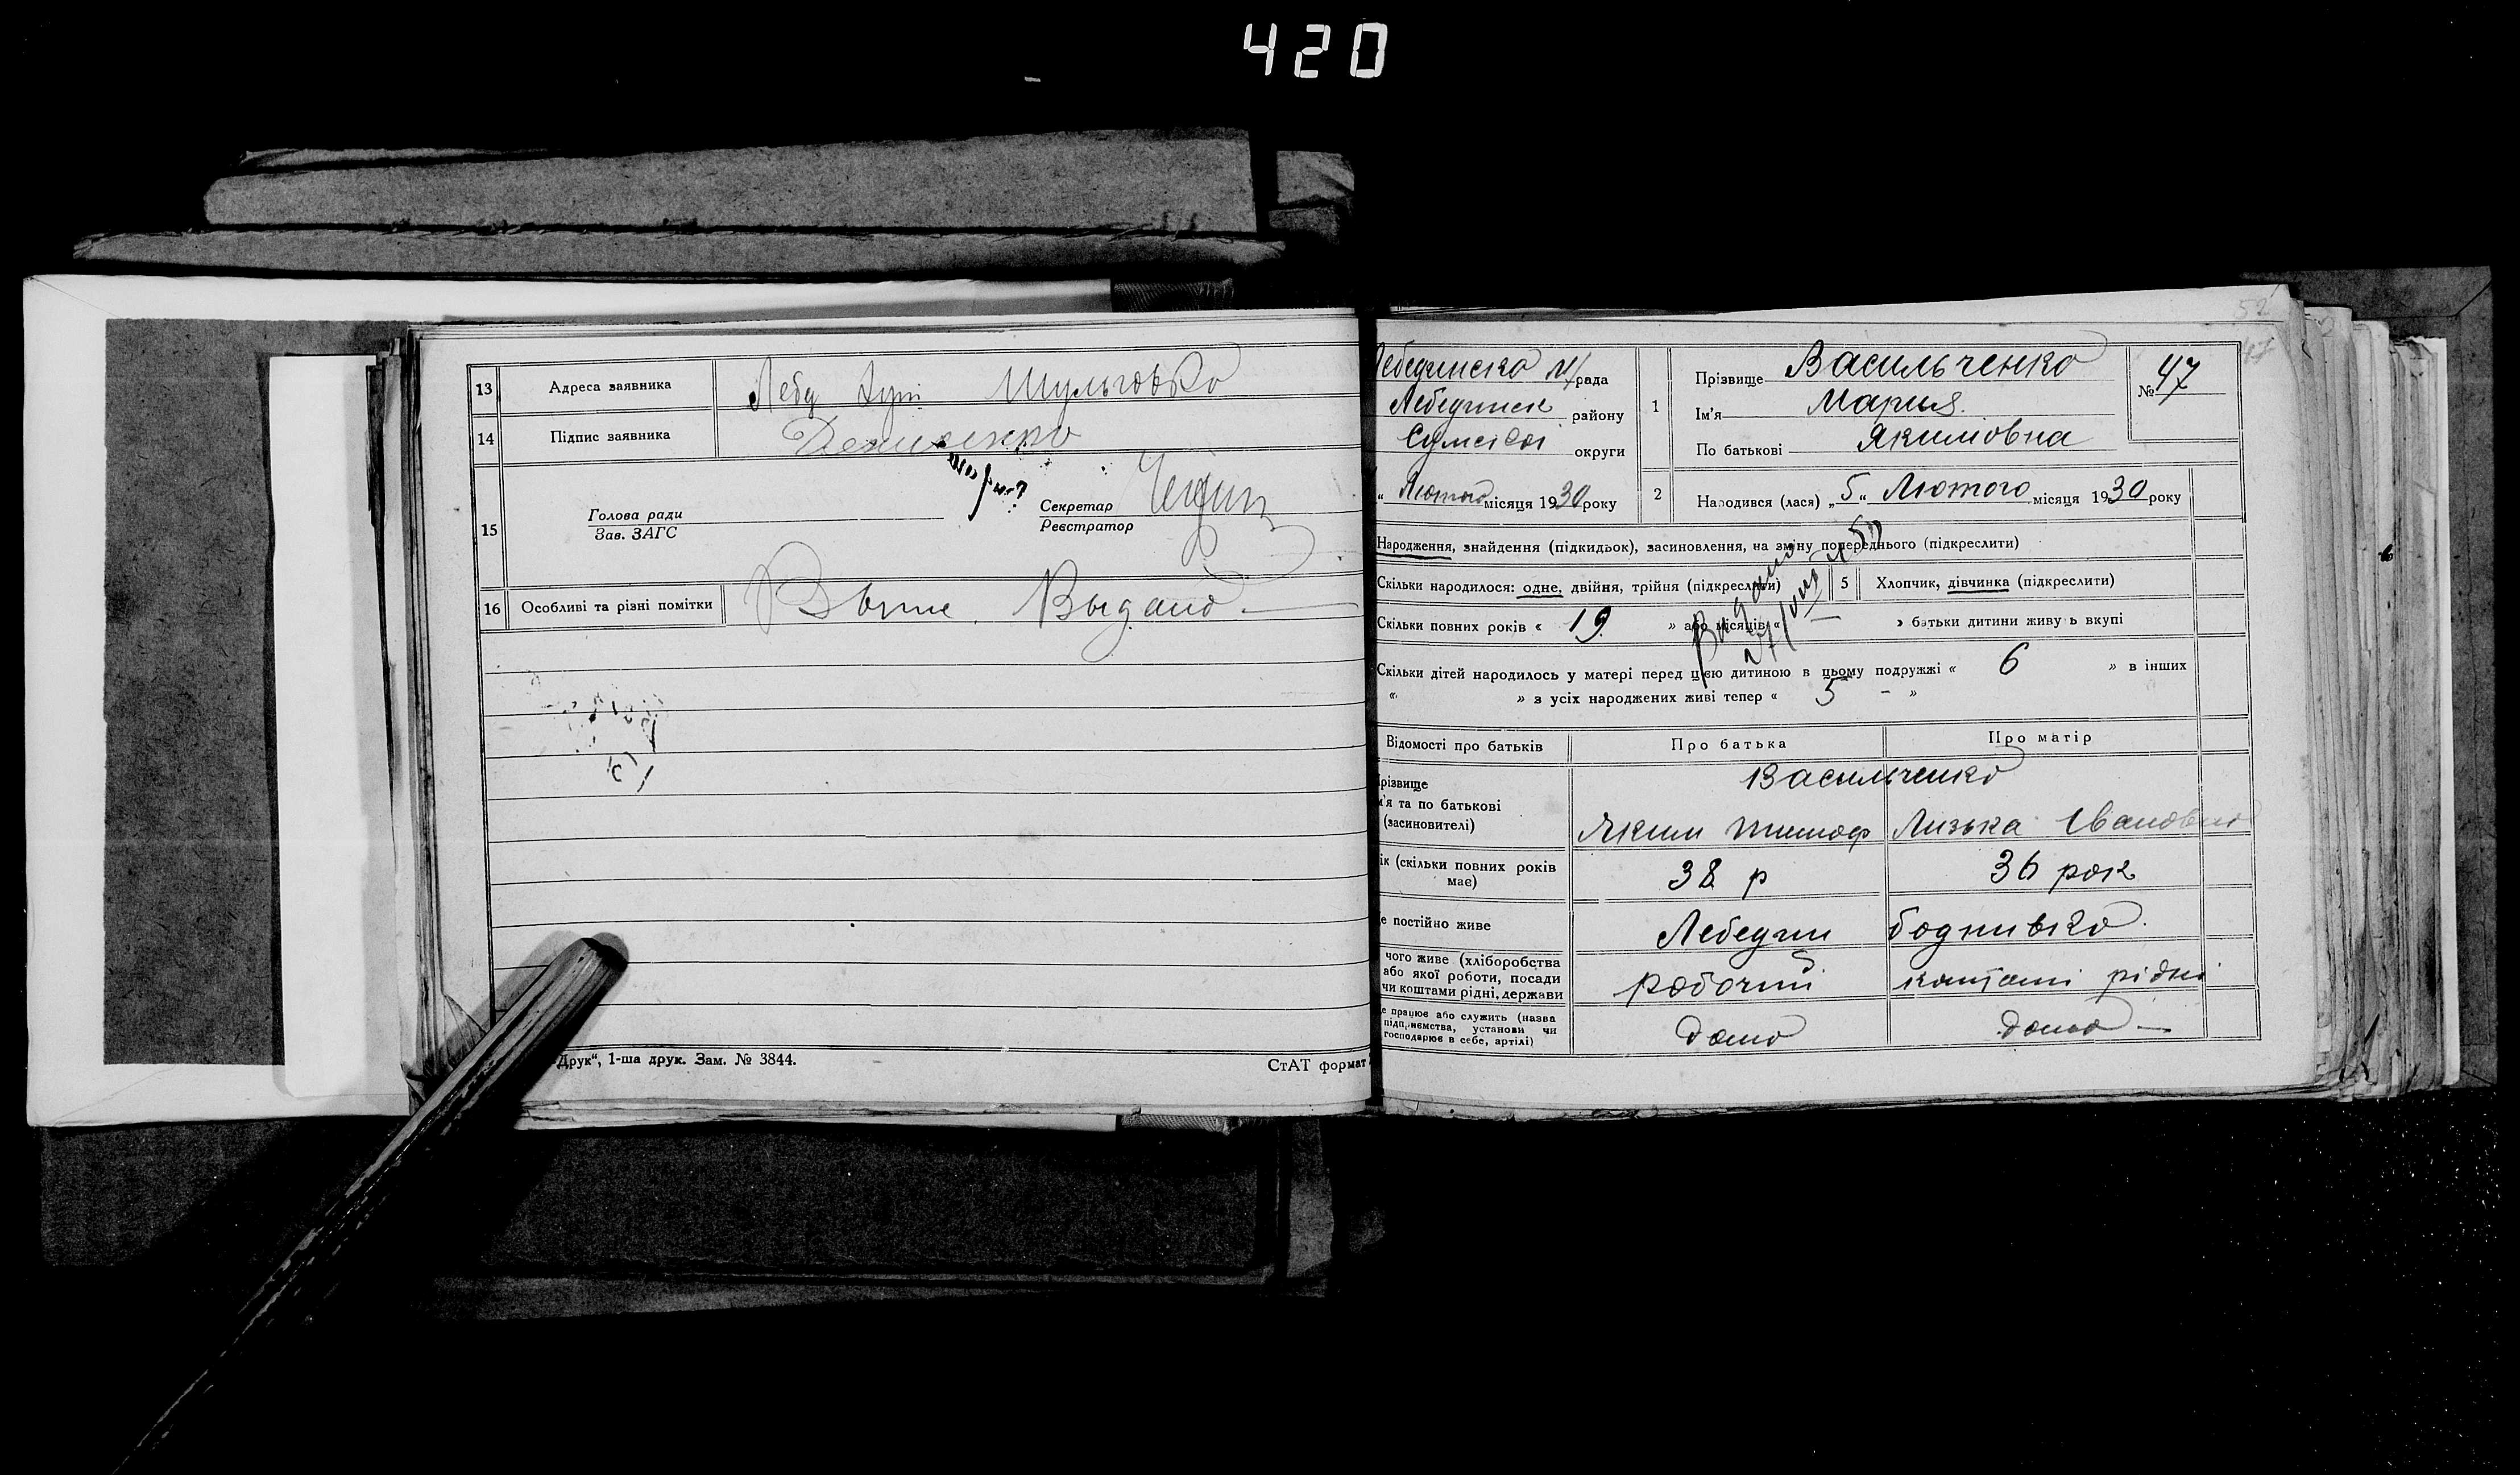 420
13 Адреса заявника Лебед Шульговка
14 Підпис заявника
15 Голова ради
Зав. ЗАГС
Секретар
Реєстратор
16 Особливі та різні помітки Выдано
Друк“, 1-ша друк. Зам. № 3844.
СтАТ формат
52
47
Лебединско м/рада
Лебединск району
Сумской округи
„ Лютого місяця 1930 року
1 Прізвище Васильченко
Ім'я Мария.
По батькові Якимовна
№ 47
2 Народився (лася) „5“ Лютого місяця 1930 року
Народження, знайдення (підкидьок), засиновлення, на зміну попереднього (підкреслити)
Скільки народилося: одне, двійня, трійня (підкреслити) 5 Хлопчик, дівчинка (підкреслити)
Скільки повних років « 19 » або місяців « » батьки дитини живуть вкупі
Видано
Скільки дітей народилось у матері перед цією дитиною в цьому подружжі « 6 » в інших
« » з усіх народжених живі тепер « 5 - »
Відомості про батьків Про батька Про матір
різвище
м'я та по батькові
(засновителі)
Васильченко
Яким Тимоф Лизька Івановна
ік (скільки повних років має) 38 р 36 рок
е постійно живе Лебедин
чого живе (хліборобства
або якої роботи, посади
чи коштами рідні, держави
робочий коштами рідні
е працює або служить (назва
підприємства, установи чи
господарює в себе, артілі)
дома дома